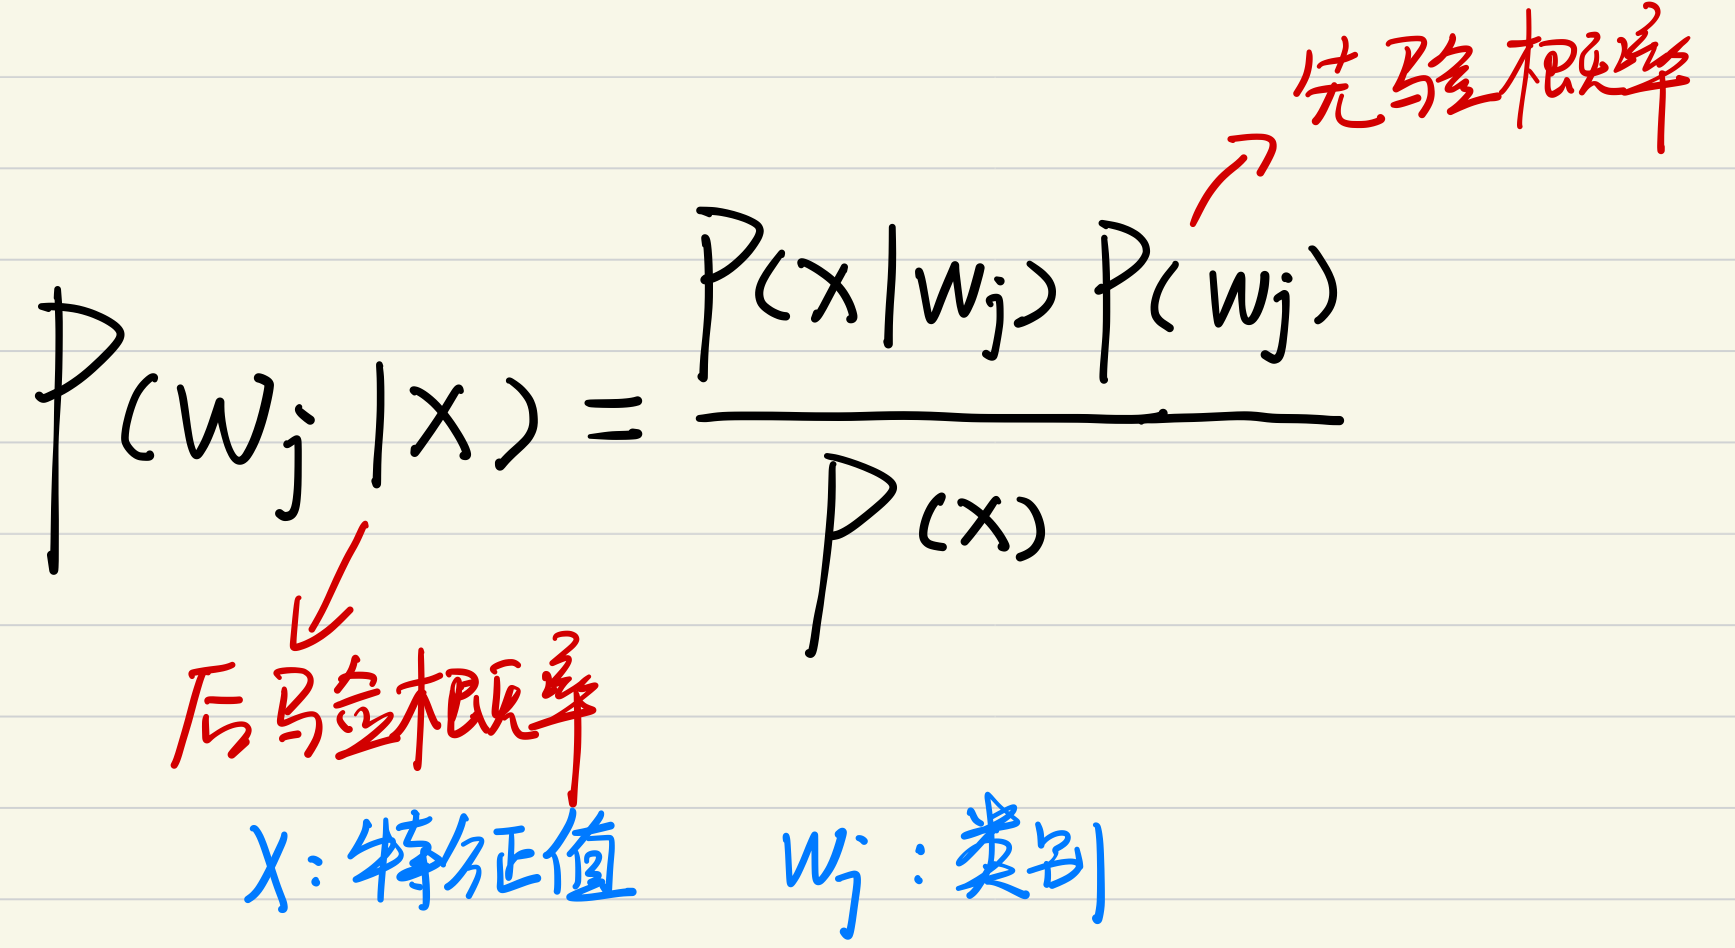 先验概率
P(Wj|X) = P(X|Wj) P(Wj) / P(X)
后验概率
X:特征值 Wj:类别